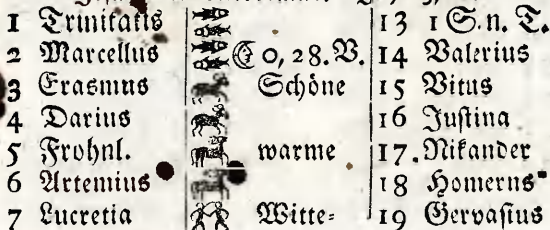 1 Trinitatis 13 1 S. n. T.
2 Marcellus ☾ 0, 28. V. 14 Valerius
3 Erasmus Schöne 15 Vitus
4 Darius 16 Justina
5 Frohnl. warme 17. Nikander
6 Artemius 18 Homerus
7 Lucretia Witte= 19 Gervasius